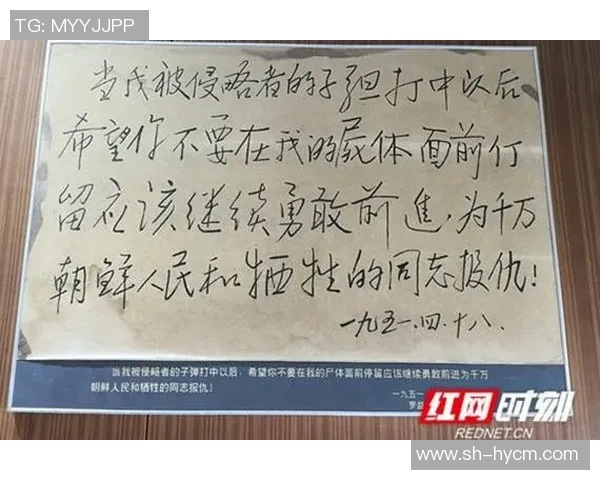 TG: MYYJJPP
当我被侵略者的子弹打中以后
希望你不要在我的屍体面前仃
留应该继续勇敢前進,为千万
朝鲜人民和牺牲的同志报仇!
一九五一.四.十八.
当我被侵略者的子弹打中以后,希望你不要在我的尸体面前停留应该继续勇敢前进为千万
朝鲜人民和牺牲的同志报仇!
一九五一
罗
红网时刻
REDNET.CN
www.sh-hycm.com